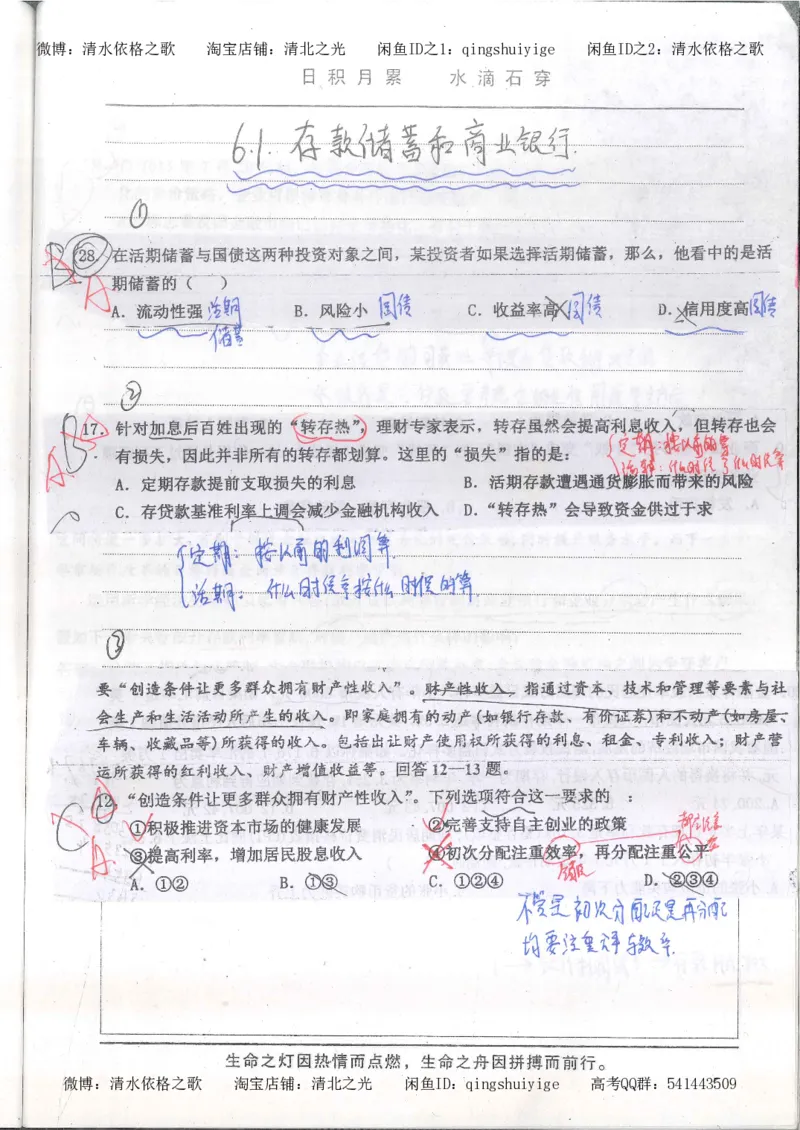 微博：清水依格之歌 淘宝店铺：清北之光 闲鱼ID之1：qingshuiyige 闲鱼ID之2：清水依格之歌
日积月累 水滴石穿
6.1. 存款储蓄和商业银行.
①
B 28. 在活期储蓄与国债这两种投资对象之间，某投资者如果选择活期储蓄，那么，他看中的是活
A 期储蓄的（ ）
A. 流动性强 活期储蓄 B. 风险小 国债 C. 收益率高 国债 D. 信用度高 国债
②
B 17. 针对加息后百姓出现的“转存热”，理财专家表示，转存虽然会提高利息收入，但转存也会
A 有损失，因此并非所有的转存都划算。这里的“损失”指的是：
定期：按以前的算
活期：什么时候
A. 定期存款提前支取损失的利息 B. 活期存款遭遇通货膨胀而带来的风险
C. 存贷款基准利率上调会减少金融机构收入 D. “转存热”会导致资金供过于求
定期：按以前的利润算.
活期：什么时候拿按什么时候的算.
③
要“创造条件让更多群众拥有财产性收入”。财产性收入，指通过资本、技术和管理等要素与社
会生产和生活活动所产生的收入。即家庭拥有的动产(如银行存款、有价证券)和不动产(如房屋、
车辆、收藏品等)所获得的收入。包括出让财产使用权所获得的利息、租金、专利收入；财产营
运所获得的红利收入、财产增值收益等。回答12—13题。
C 12. “创造条件让更多群众拥有财产性收入”。下列选项符合这一要求的
①积极推进资本市场的健康发展 ②完善支持自主创业的政策
A. ③提高利率，增加居民股息收入 ④初次分配注重效率，再分配注重公平
A. ①② B. ①③ C. ①②④ D. ②③④
不管是初次分配还是再分配
均要注重公平与效率.
生命之灯因热情而点燃，生命之舟因拼搏而前行。
微博：清水依格之歌 淘宝店铺：清北之光 闲鱼ID：qingshuiyige 高考QQ群：541443509